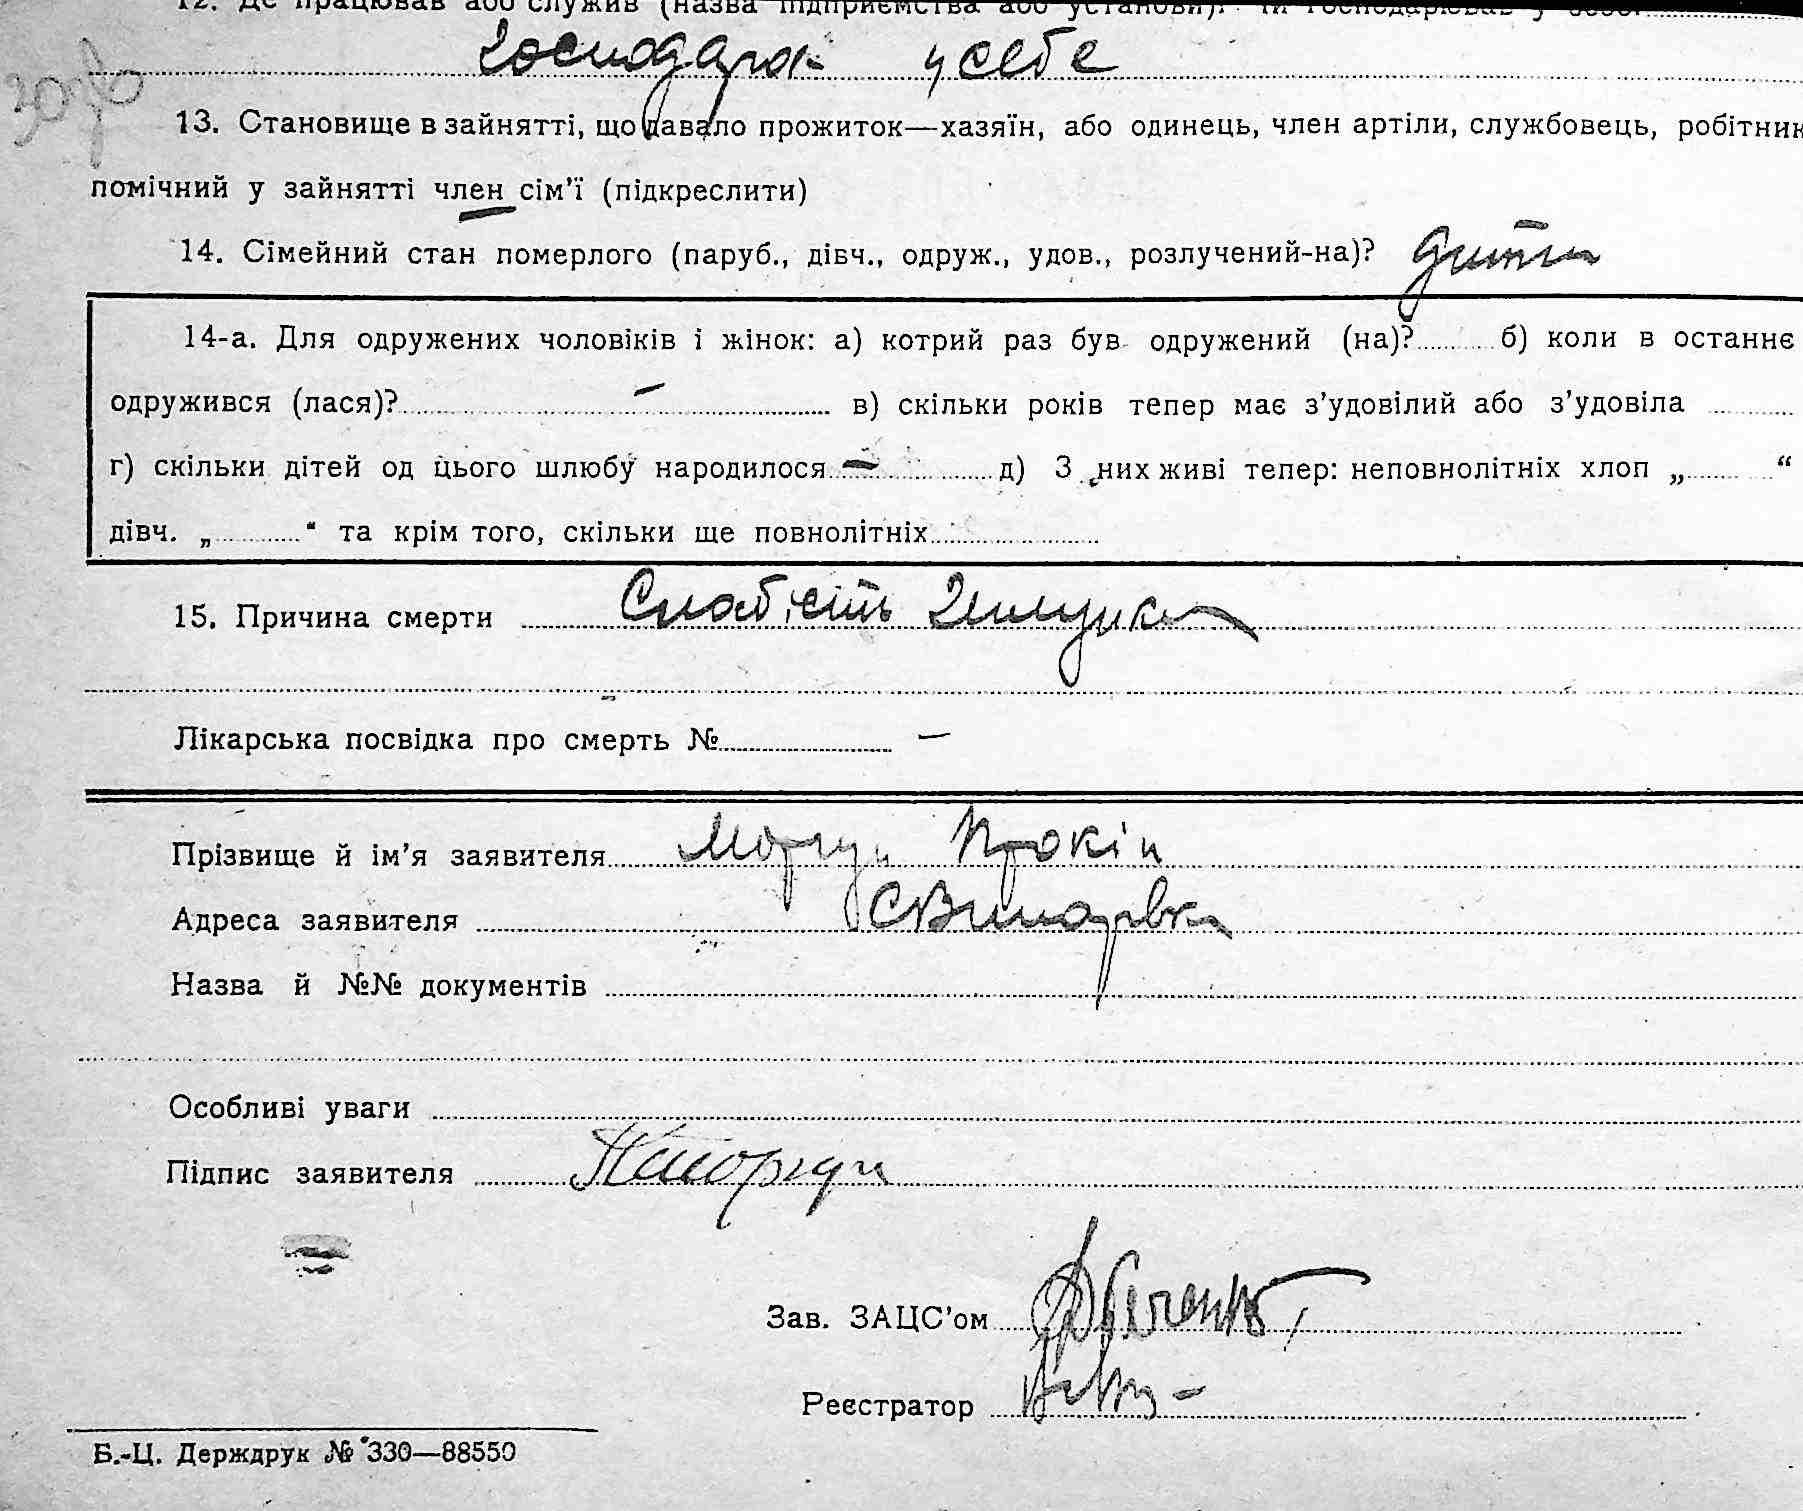 12. Де працював або служив (назва підприємства або установи). Чи господарював у себе.
у себе
13. Становище в зайнятті, що давало прожиток—хазяїн, або одинець, член артіли, службовець, робітник
помічний у зайнятті член сім’ї (підкреслити)
14. Сімейний стан померлого (паруб., дівч., одруж., удов., розлучений-на)? дитя
14-а. Для одружених чоловіків і жінок: а) котрий раз був одружений (на)? б) коли в останнє
одружився (лася)? — в) скільки років тепер має з’удовілий або з’удовіла
г) скільки дітей од цього шлюбу народилося — д) З них живі тепер: неповнолітніх хлоп „ “
дівч. „ “ та крім того, скільки ще повнолітніх
15. Причина смерти Слабість шлунка
Лікарська посвідка про смерть № —
Прізвище й ім’я заявителя Моргун Прокіп
Адреса заявителя
Назва й №№ документів
Особливі уваги
Підпис заявителя Моргун
Зав. ЗАЦС’ом
Реєстратор
Б.-Ц. Держдрук № 330—88550